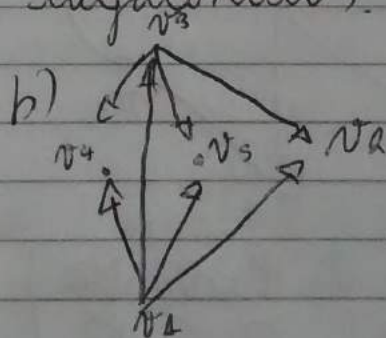 v3
b)
v4
v5
v2
v1